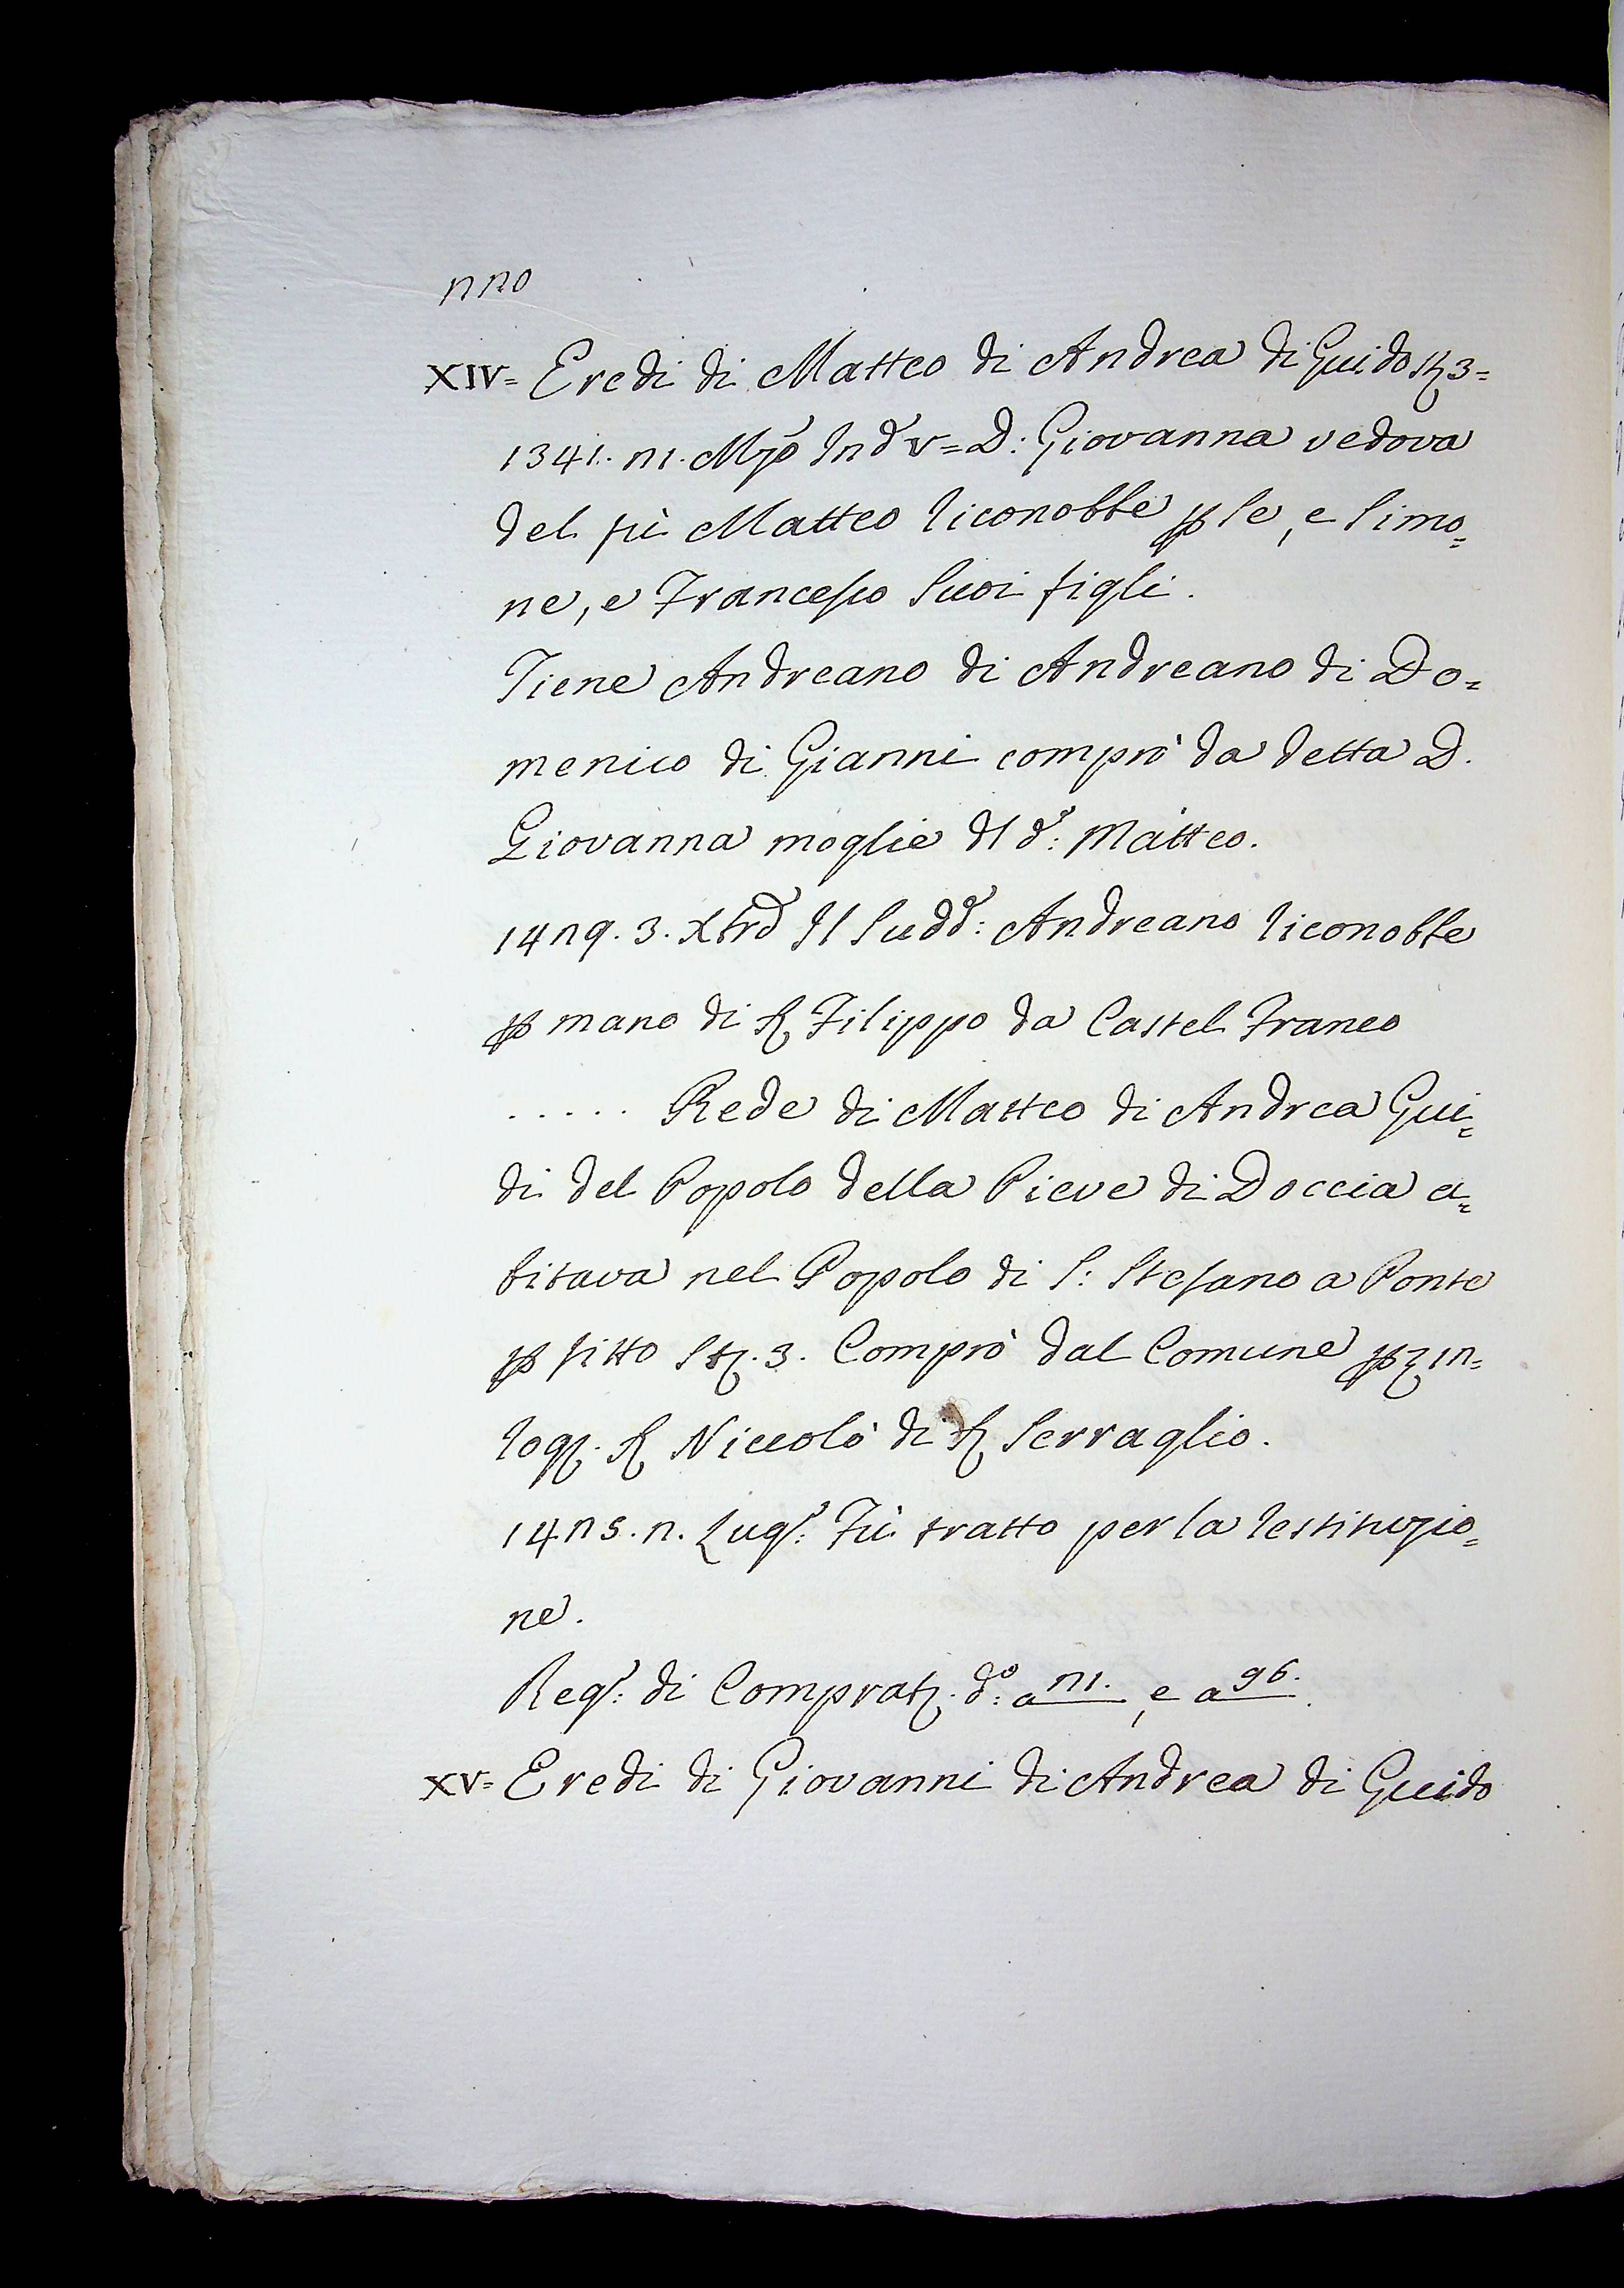 220
XIV= Eredi di Matteo di Andrea di Guido St. 3=
1341. 21. Mzo Ind V= D: Giovanna vedova
del fù Matteo riconobbe p se, e Simo=
ne, e Francesco suoi figli.
Tiene Andreano di Andreano di Do=
menico di Gianni comprò da detta D.
Giovanna moglie dl d: Matteo.
1429. 3. Xbre Il sudd: Andreano riconobbe
p mano di S Filippo da Castel Franco
..... Rede di Matteo di Andrea Gui=
di del Popolo della Pieve di Doccia a=
bitava nel Popolo di S: Stefano a Ponte
p fitto St. 3. Comprò dal Comune p 12=
rog. S Niccolò di S Serraglio.
1425. 2. Lug: Fù tratto per la restituzio=
ne.
Reg: di Comprat. do: a 21. , e a 96.
XV= Eredi di Giovanni di Andrea di Guido